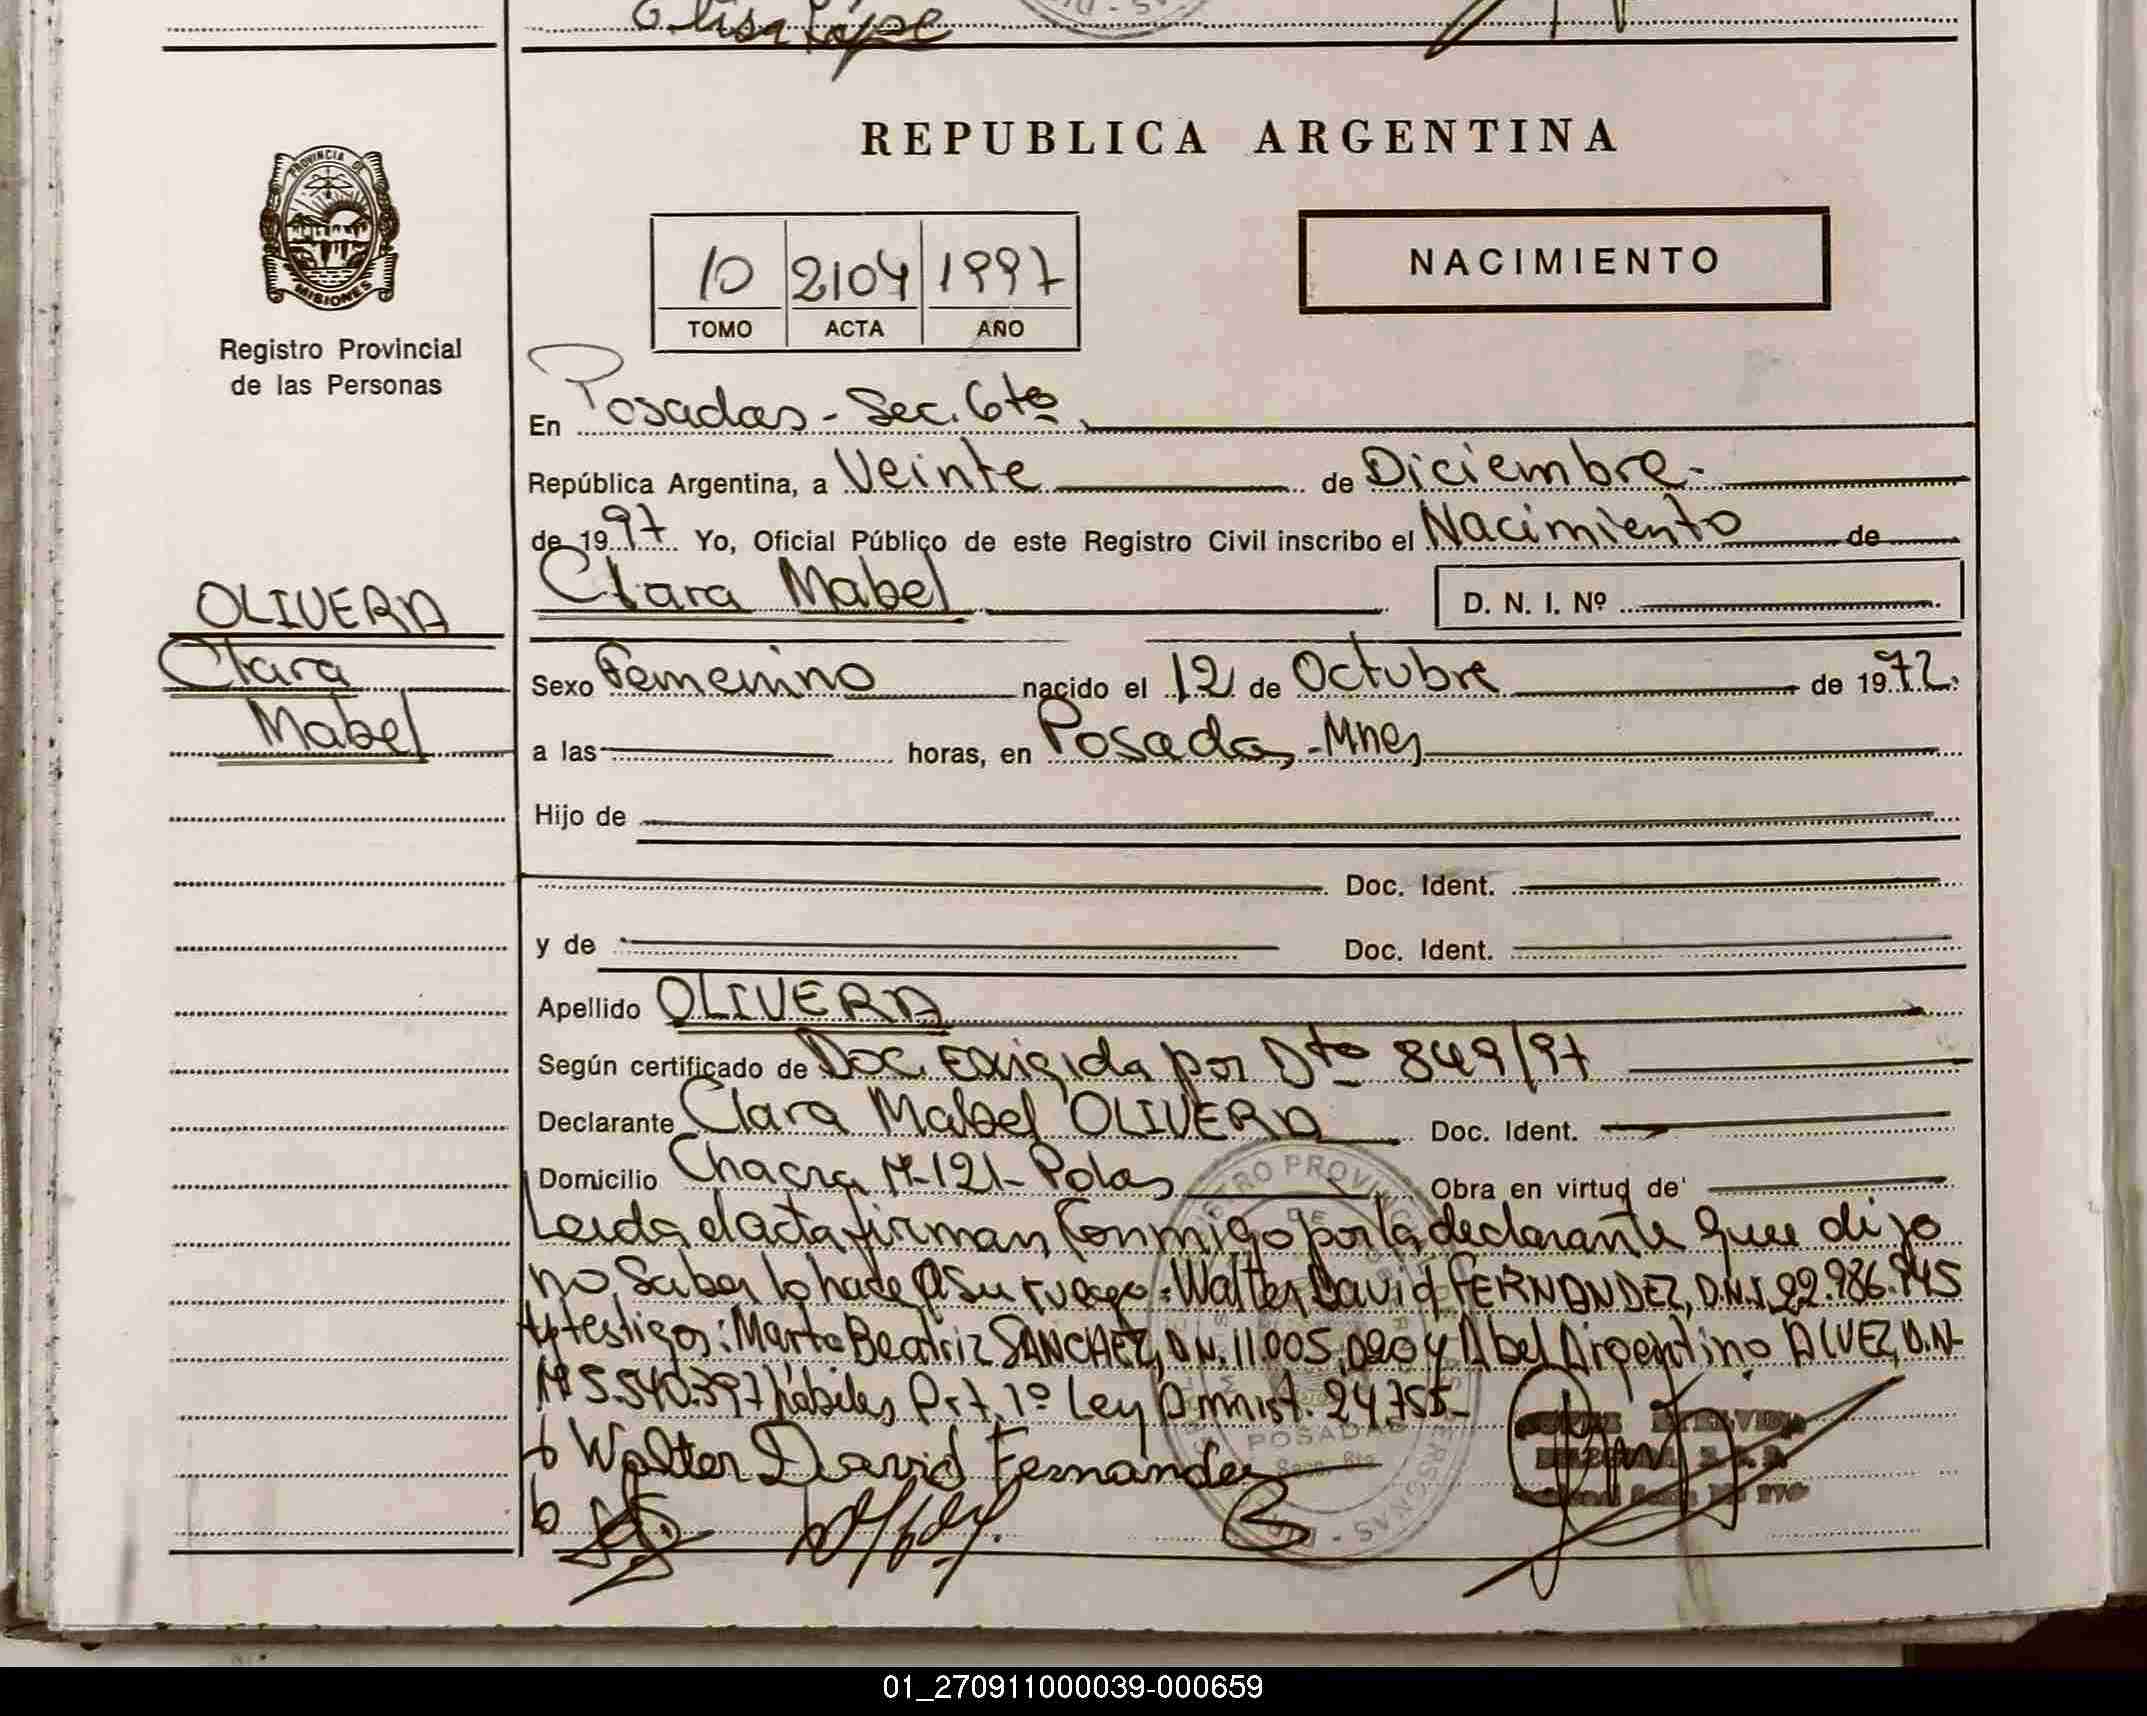 Elisa
REPUBLICA ARGENTINA
PROVINCIA DE
MISIONES
Registro Provincial
de las Personas
10 2104 1997
TOMO ACTA AÑO
NACIMIENTO
En Posadas - Sec. 6ta
República Argentina, a Veinte de Diciembre.-
de 1997 Yo, Oficial Público de este Registro Civil inscribo el Nacimiento de
OLIVERA
Clara
Mabel
Clara Mabel D. N. I. Nº
Sexo Femenino nacido el 12 de Octubre de 1972.
a las horas, en Posadas - Mnes
Hijo de
Doc. Ident.
y de Doc. Ident.
Apellido OLIVERA
Según certificado de Doc. Exigida por Dto 849/97
Declarante Clara Mabel OLIVERA Doc. Ident.
Domicilio Chacra Nº 121 - Pdas Obra en virtud de
Leida el acta firman Conmigo por la declarante que dijo
no Saber lo hace a su ruego: Walter David FERNANDEZ, D.N.I. 22.986.945
testigos: Marta Beatriz SANCHEZ, D.N. 11.005.020 y Abel Argentino ALVEZ, D.N-
Nº 5.540.397 hábiles Art. 1º Ley Amnist. 24.755-
Walter David Fernandez
POSADAS
01_270911000039-000659